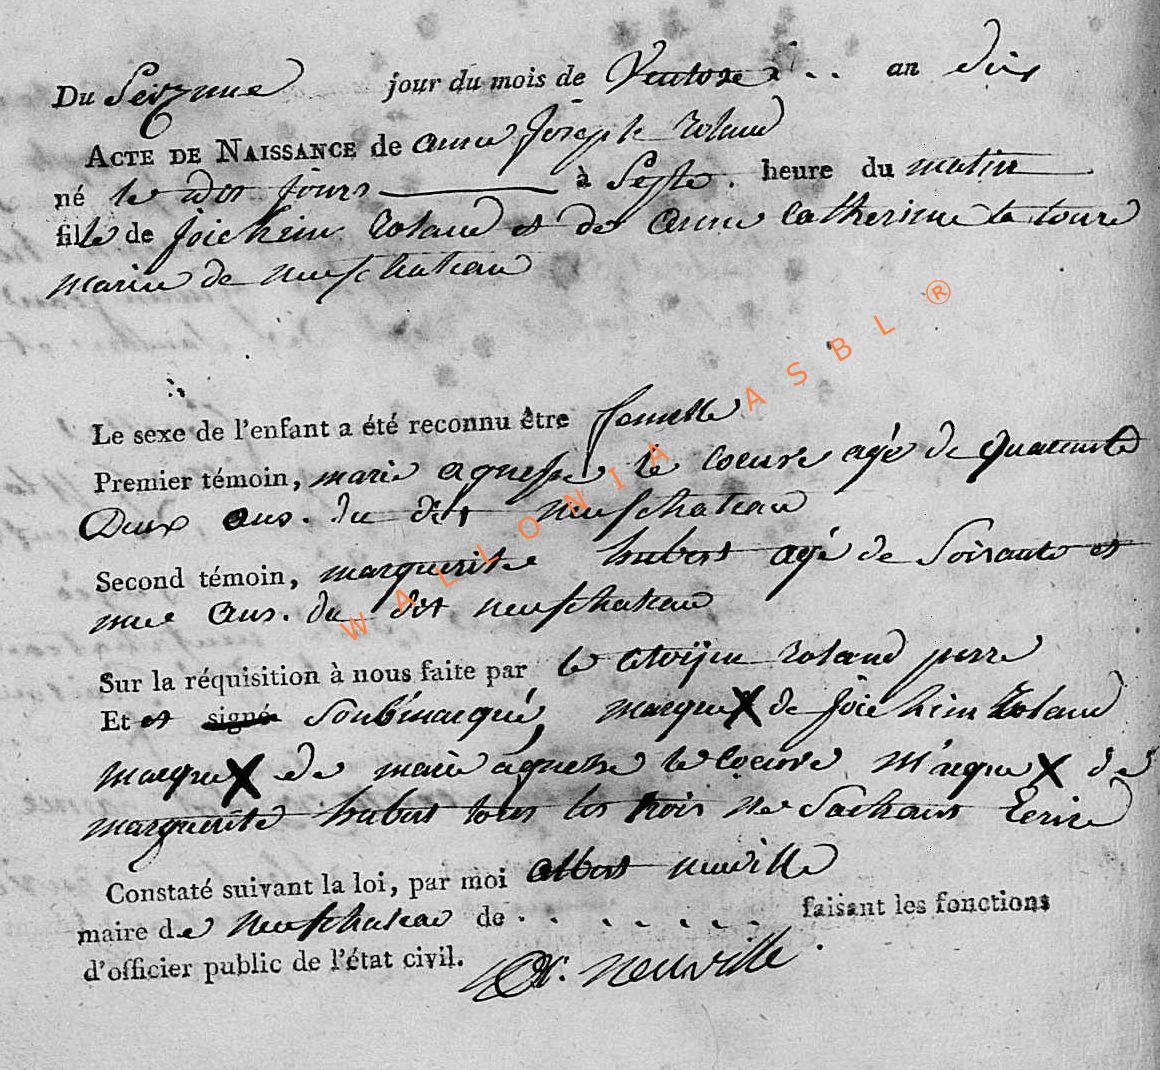 Du Seizeme jour du mois de Ventose . . an dix
ACTE DE NAISSANCE de anne joseph Roland
né le dit jours à Septe . heure du matin
fille de joichim Roland et de anne Catherinne la toure
mariu de neufchateau
Le sexe de l'enfant a été reconnu être femelle
Premier témoin, marie agnesse le coeuvre agé de quarente
Deux ans. du dit neufchateau
Second témoin, marguerite hubert agé de Soisante et
une ans. du dit neufchateau
Sur la réquisition à nous faite par le Citoÿen roland perre
Et et signé Soubmarqué, marque X de joichim Roland
marque X de marie agnesse le coeuvre marque X de
marguerite hubert tous les trois ne Sachans Ecrire
Constaté suivant la loi, par moi albert neuville
maire de neufchateau de . . . . . . . faisant les fonctions
d'officier public de l'état civil. neuville
WALLONIA ASBL ®